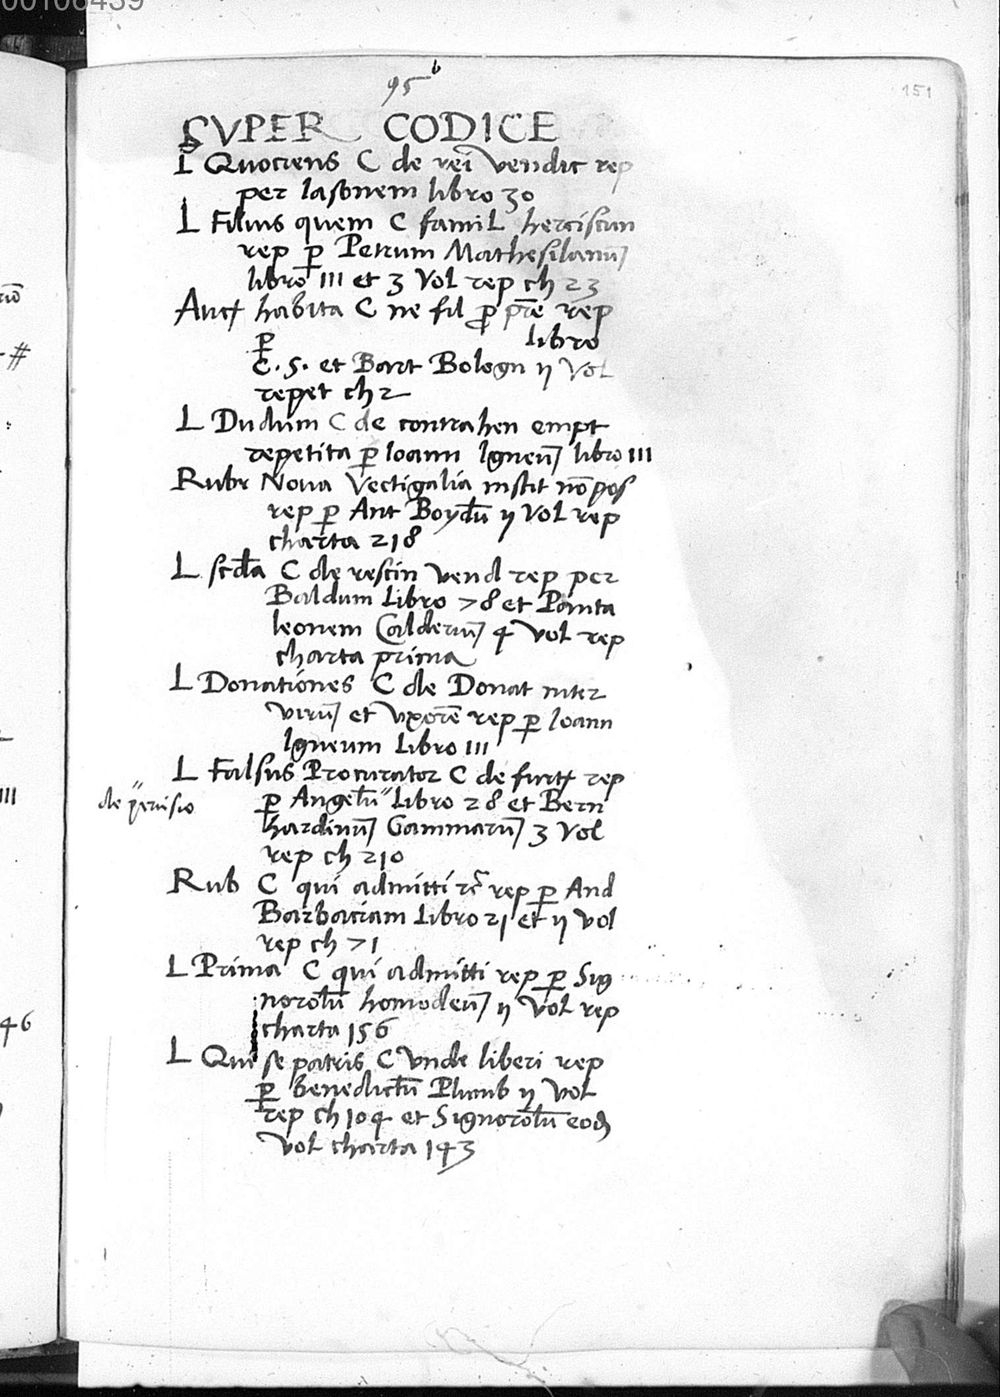 00106439
95 b
151
SVPER CODICE
L Quociens C de rei vendic rep
per Iasonem libro 30
L Filius quem C famil herciscun
rep p Petrum Mathesilanu
libro III et 3 Vol rep ch 23
Auct habita C ne fil p pre rep
p libro
C. S. et Bart Bologn ij Vol
repet ch 2
L Dudum C de contrahen empt
repetita p Ioann Igneu libro III
Rubr Nova Vectigalia instit no pos
rep p Ant Boydu ij Vol rep
charta 218
L scda C de rescin vend rep per
Baldum Libro 78 et Panta
leonem Calderiu 4 Vol rep
charta prima
L Donationes C de Donat inter
viru et vxore rep p Ioann
Igneum Libro III
L Falsus Procurator C de furt rep
p Angelu" Libro 28 et Bern
hardinu Gammaru 3 Vol
rep ch 210
Rub C qui admitti rep p And
Barbaciam Libro 21 et ij vol
rep ch 71
L Prima C qui admitti rep p Sig
norolu homodeu ij Vol rep
charta 156
L Qui se patris C Vnde liberi rep
p benedictu Plumb ij Vol
rep ch 104 et Signorolu eod
Vol charta 143